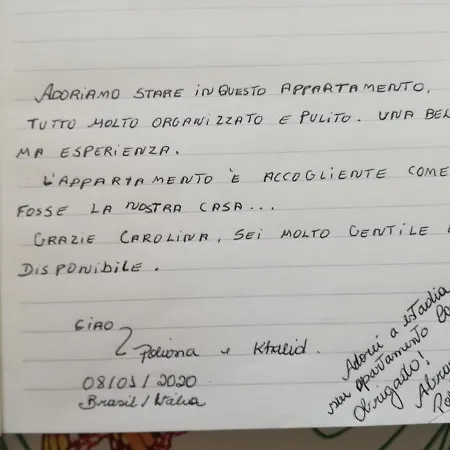 ADORIAMO STARE IN QUESTO APPARTAMENTO,
TUTTO MOLTO ORGANIZZATO E PULITO. UNA BEL
MA ESPERIENZA.
L'APPARTAMENTO È ACCOGLIENTE COME
FOSSE LA NOSTRA CASA...
GRAZIE CAROLINA, SEI MOLTO GENTILE E
DISPONIBILE.
CIAO
Poliana e Khalid.
08/01/2020
Brasil/Itália
Adorei a estadia
seu apartamento
Obrigado!